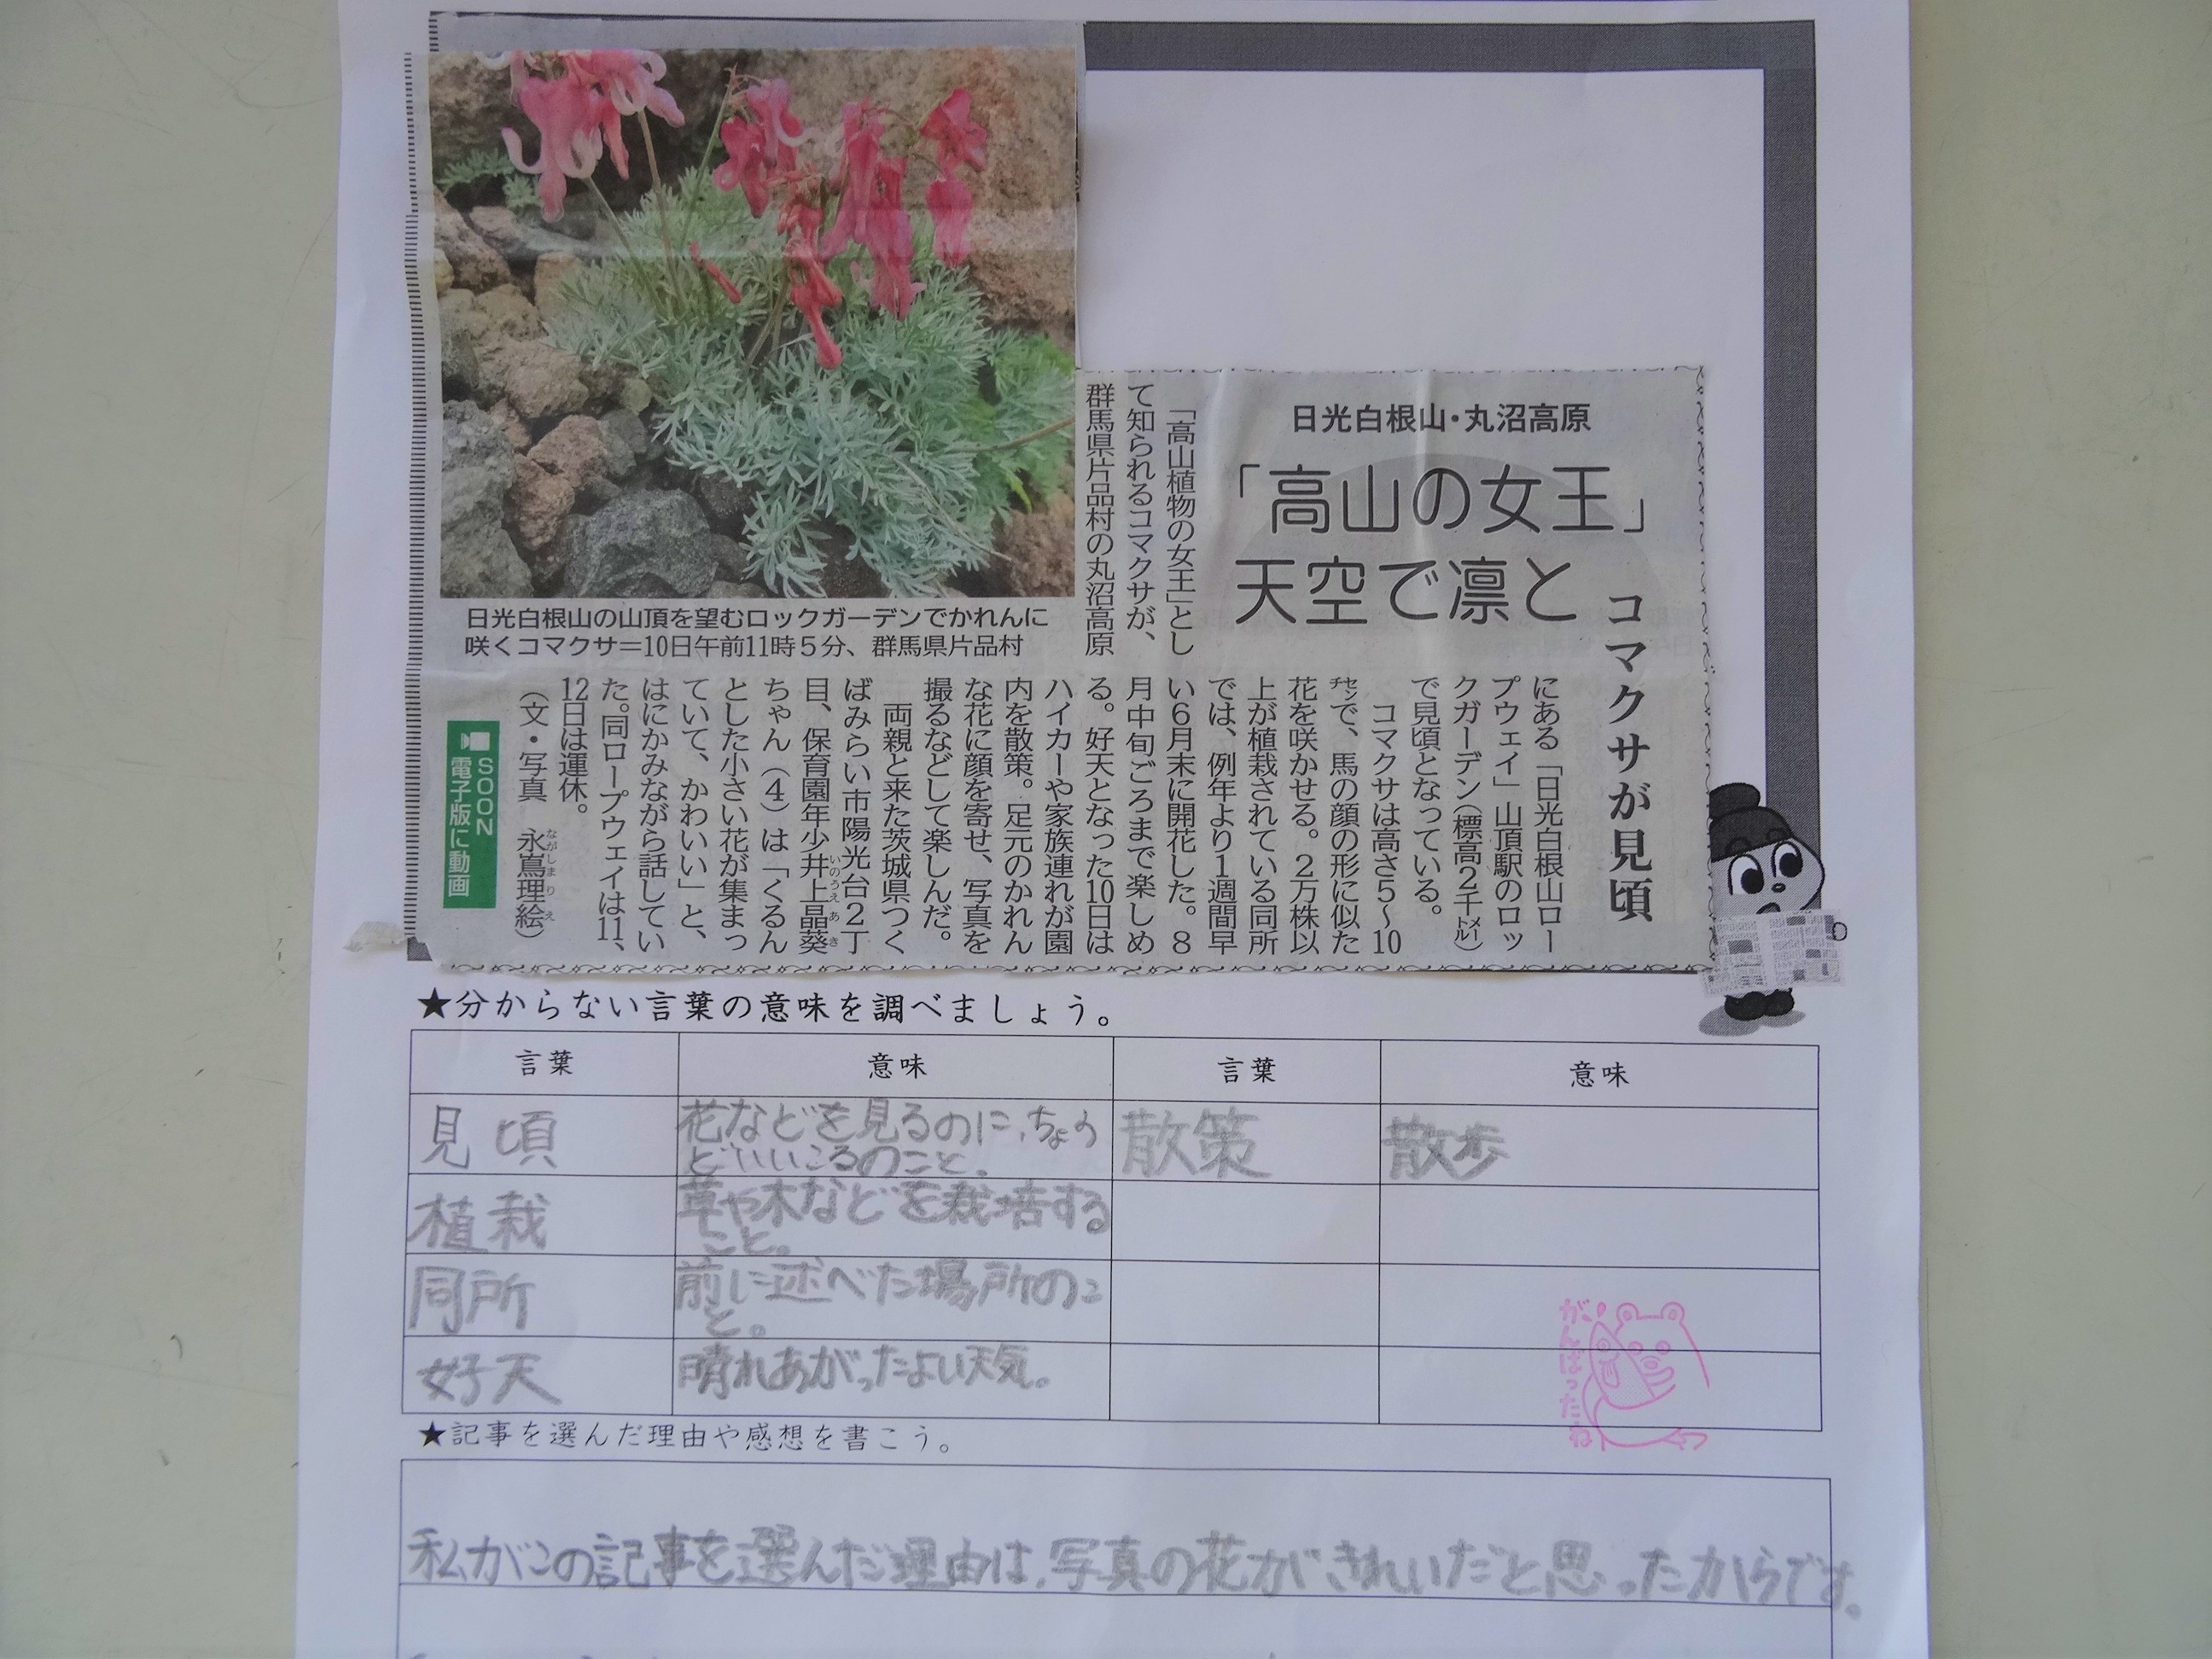 日光白根山・丸沼高原
「高山の女王」
天空で凛と
コマクサが見頃
「高山植物の女王」とし
て知られるコマクサが、
群馬県片品村の丸沼高原
にある「日光白根山ロー
プウェイ」山頂駅のロッ
クガーデン(標高2千メートル)
で見頃となっている。
コマクサは高さ5〜10
センで、馬の顔の形に似た
花を咲かせる。2万株以
上が植栽されている同所
では、例年より1週間早
い6月末に開花した。8
月中旬ごろまで楽しめ
る。好天となった10日は
ハイカーや家族連れが園
内を散策。足元のかれん
な花に顔を寄せ、写真を
撮るなどして楽しんだ。
両親と来た茨城県つく
ばみらい市陽光台2丁
目、保育園年少井上晶葵
いのうえ あき
ちゃん(4)は「くるん
とした小さい花が集まっ
ていて、かわいい」と、
はにかみながら話してい
た。同ロープウェイは11、
12日は運休。
(文・写真 永嶌理絵)
ながしま りえ
SOON
電子版に動画
日光白根山の山頂を望むロックガーデンでかれんに
咲くコマクサ=10日午前11時5分、群馬県片品村
★分からない言葉の意味を調べましょう。
言葉 意味 言葉 意味
見頃 花などを見るのに、ちょう
どいいころのこと。
散策 散歩
植栽 草や木などを栽培する
こと。
同所 前に述べた場所のこ
と。
好天 晴れあがったよい天気。
がんばったね
★記事を選んだ理由や感想を書こう。
私がこの記事を選んだ理由は、写真の花がきれいだと思ったからです。